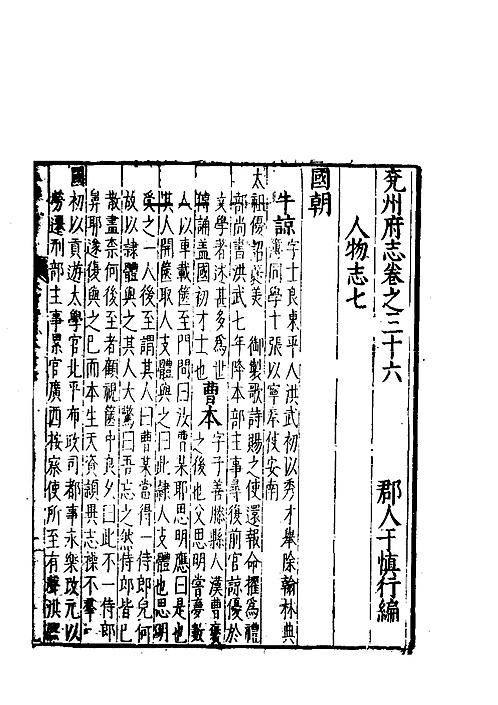 兗州府志卷之三十六
郡人于慎行編
人物志七
國朝
牛諒字士良東平人洪武初以秀才舉除翰林典
簿同學士張以寧奉使安南
太祖優詔褒美御製歌詩賜之使還報命擢為禮
部尚書洪武七年降本部主事尋復前官諒優於
文學者述甚多為世
誦盖國初才士也曹本字子善滕縣人漢曹褒
之後也父思明嘗夢數
人以車載篋至門問曰汝曹某耶思明應曰是也
其人開篋取人支體與之曰此隷人支體也思明
受之一人後至謂其人曰曹某當得一侍郎兒何
故以隷體與之其人大驚曰吾忘之然侍郎皆已
散盡奈何後至者顧視篋中良久曰此不一侍郎
鼻耶遂復與之已而本生天資頴異志操不羣
國初以貢遊太學官北平布政司都事永樂改元以
勞遷刑部主事累官廣西按察使所至有聲洪熙